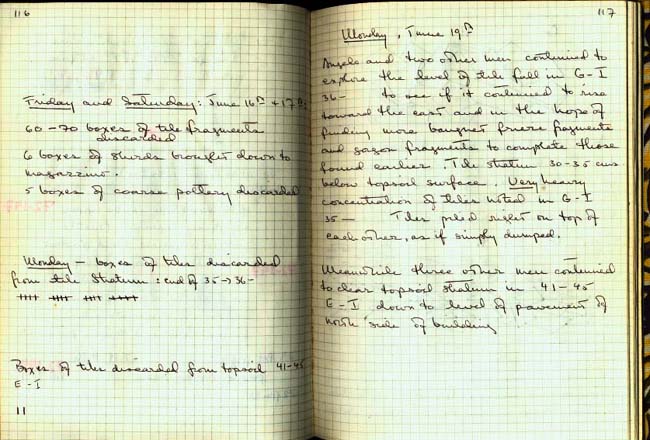 116
Friday and Saturday: June 16th + 17th:
60-70 boxes of tile fragments
discarded
6 boxes of sherds brought down to
magazzino.
5 boxes of coarse pottery discarded
Monday - boxes of tiles discarded
from tile stratum: end of 35 → 36-
Boxes of tiles discarded from topsoil 41-45
E-I
11
117
Monday, June 19th
Angelo and two other men continued to
explore the level of tile fall in G-I
36- to see if it continued to rise
toward the east and in the hope of
finding more banquet frieze fragments
and gorgon fragments to complete those
found earlier. Tile stratum 30-35 cms
below topsoil surface. Very heavy
concentration of tiles noted in G-I
35- Tiles piled right on top of
each other, as if simply dumped.
Meanwhile three other men continued
to clear topsoil stratum in 41-45
E-I down to level of pavement of
north side of building